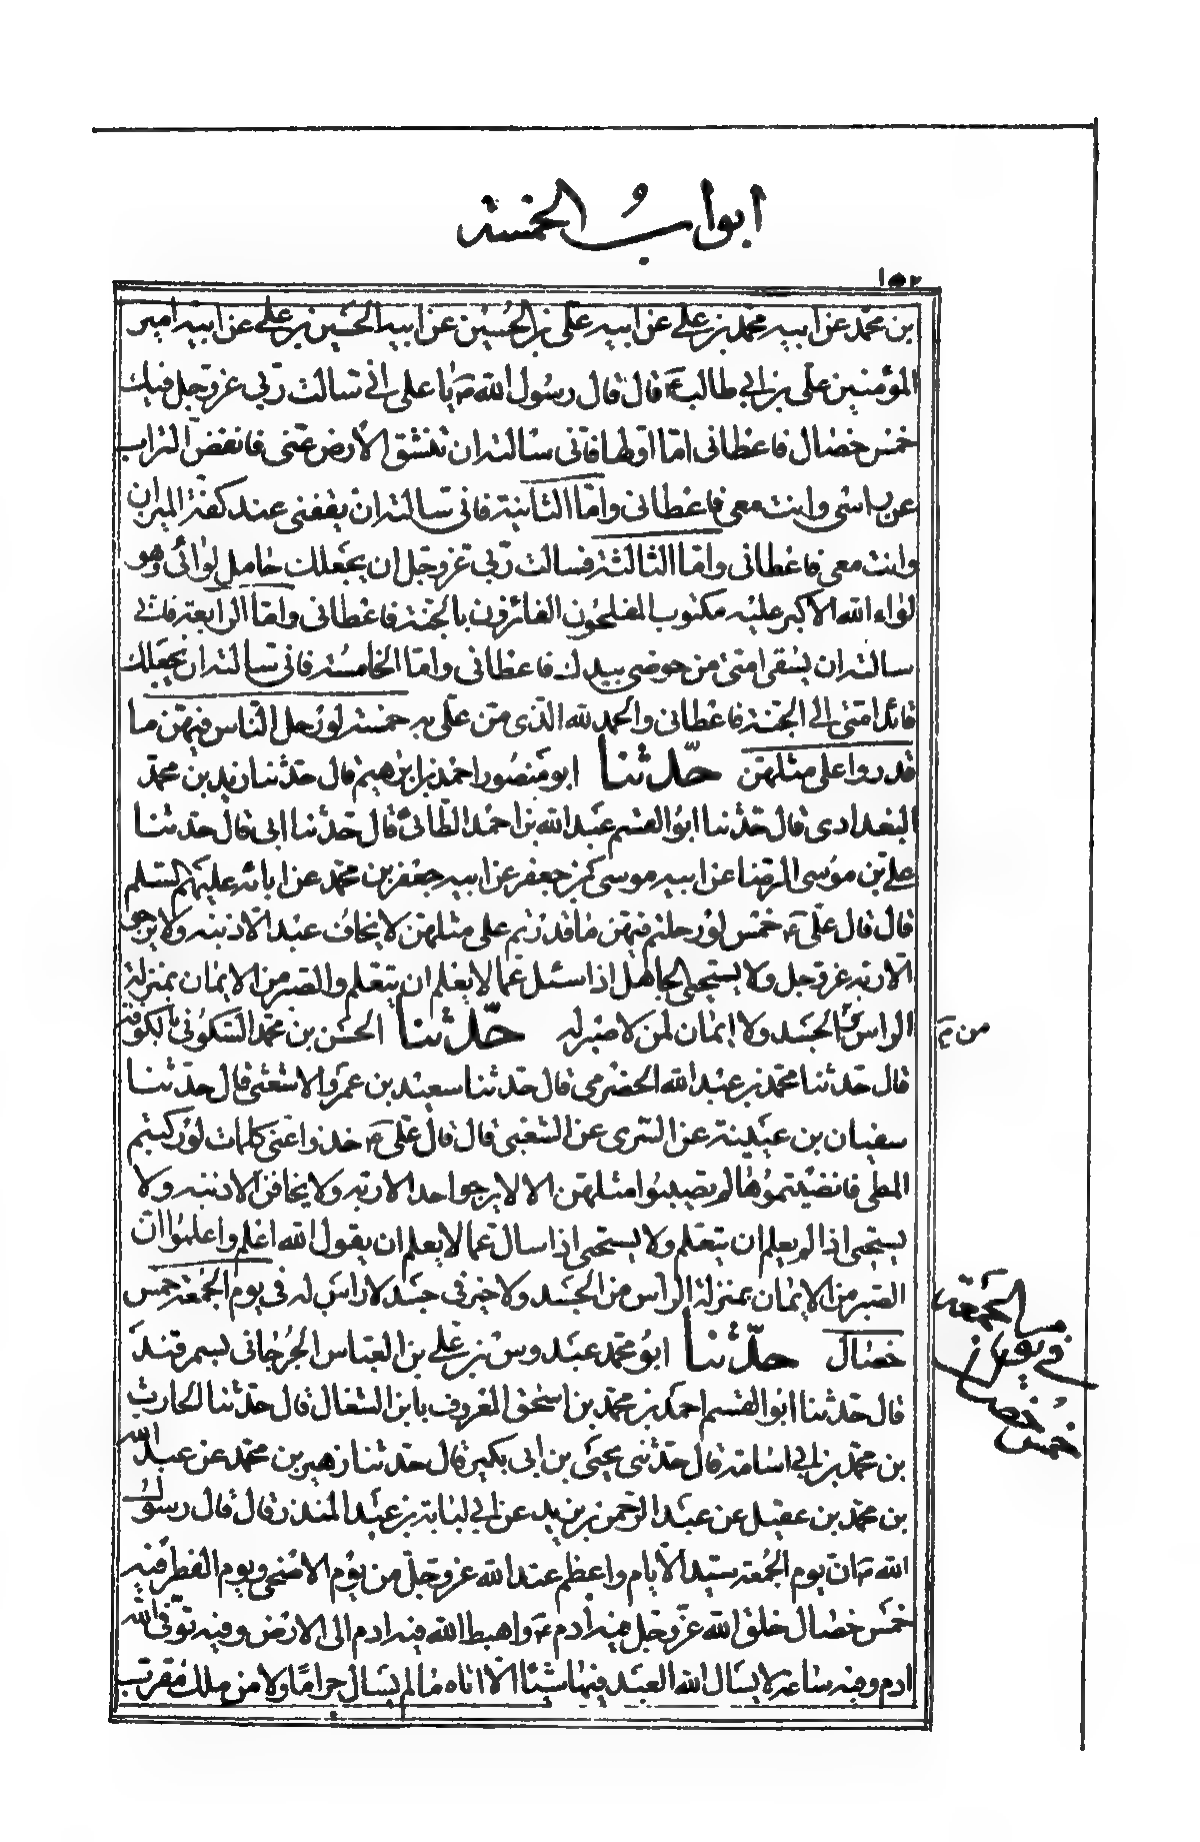 ابواب الخمسة
١٥٢
بن محمد عن ابيه محمد بن علي عن ابيه علي بن الحسين عن ابيه الحسين بن علي عن ابيه امير
المؤمنين علي بن ابي طالب ع قال قال رسول الله ص يا علي اني سالت ربي عز وجل فيك
خمس خصال فاعطاني اما اولها فاني سالته ان تنشق الارض عني فانفض التراب
عن راسي وانت معي فاعطاني واما الثانية فاني سالته ان يقفني عند كفة الميزان
وانت معي فاعطاني واما الثالثة فسالت ربي عز وجل ان يجعلك حامل لوائي وهو
لواء الله الاكبر عليه مكتوب المفلحون الفائزون بالجنة فاعطاني واما الرابعة فاني
سالته ان يسقى امتي من حوضي بيدك فاعطاني واما الخامسة فاني سالته ان يجعلك
قائد امتي الى الجنة فاعطاني والحمد لله الذي من علي به خمسة لو رحل الناس فيهن ما
قدروا على مثلهن حدثنا ابو منصور احمد بن ابرهيم قال حدثنا زيد بن محمد
البغدادي قال حدثنا ابو القسم عبد الله بن احمد الطائي قال حدثنا ابي قال حدثنا
علي بن موسى الرضا عن ابيه موسى بن جعفر عن ابيه جعفر بن محمد عن ابائه عليهم السلم
قال قال علي ع خمس لو رحلتم فيهن ما قدرتم على مثلهن لا يخاف عبد الا ذنبه ولا يرجو
الا ربه عز وجل ولا يستحيي الجاهل اذا سئل عما لا يعلم ان يتعلم والصبر من الايمان بمنزلة
الراس من الجسد ولا ايمان لمن لا صبر له حدثنا الحسن بن محمد السكوني بالكوفة
من
قال حدثنا محمد بن عبد الله الحضرمي قال حدثنا سعيد بن عمرو الاشعثي قال حدثنا
سفيان بن عيينة عن السري عن الشعبي قال قال علي ع خذوا عني كلمات لو ركبتم
المطي فانضيتموها لم تصيبوا مثلهن الا لا يرجوا احد الا ربه ولا يخافن الا ذنبه ولا
يستحيي اذا لم يعلم ان يتعلم ولا يستحيي اذا سال عما لا يعلم ان يقول الله اعلم واعلموا ان
الصبر من الايمان بمنزلة الراس من الجسد ولا خير في جسد لا راس له في يوم الجمعة خمس
خصال حدثنا ابو محمد عبدوس بن علي بن العباس الجرجاني بسمرقند
الجمعة
في يوم
خمس خصال
قال حدثنا ابو القسم احمد بن محمد بن اسحق المعروف بابن الشغال قال حدثنا الحارث
بن محمد بن ابي اسامة قال حدثني يحيى بن ابي بكير قال حدثنا زهير بن محمد عن عبد الله
بن محمد بن عقيل عن عبد الرحمن بن يزيد عن ابي لبابة بن عبد المنذر قال قال رسول
الله ص ان يوم الجمعة سيد الايام واعظم عند الله عز وجل من يوم الاضحى ويوم الفطر فيه
خمس خصال خلق الله عز وجل فيه آدم ع واهبط الله فيه ادم الى الارض وفيه توفى الله
ادم وفيه ساعة لا يسال الله العبد فيها شيئا الا اتاه ما لم يسال حراما ولا من ملك مقرب